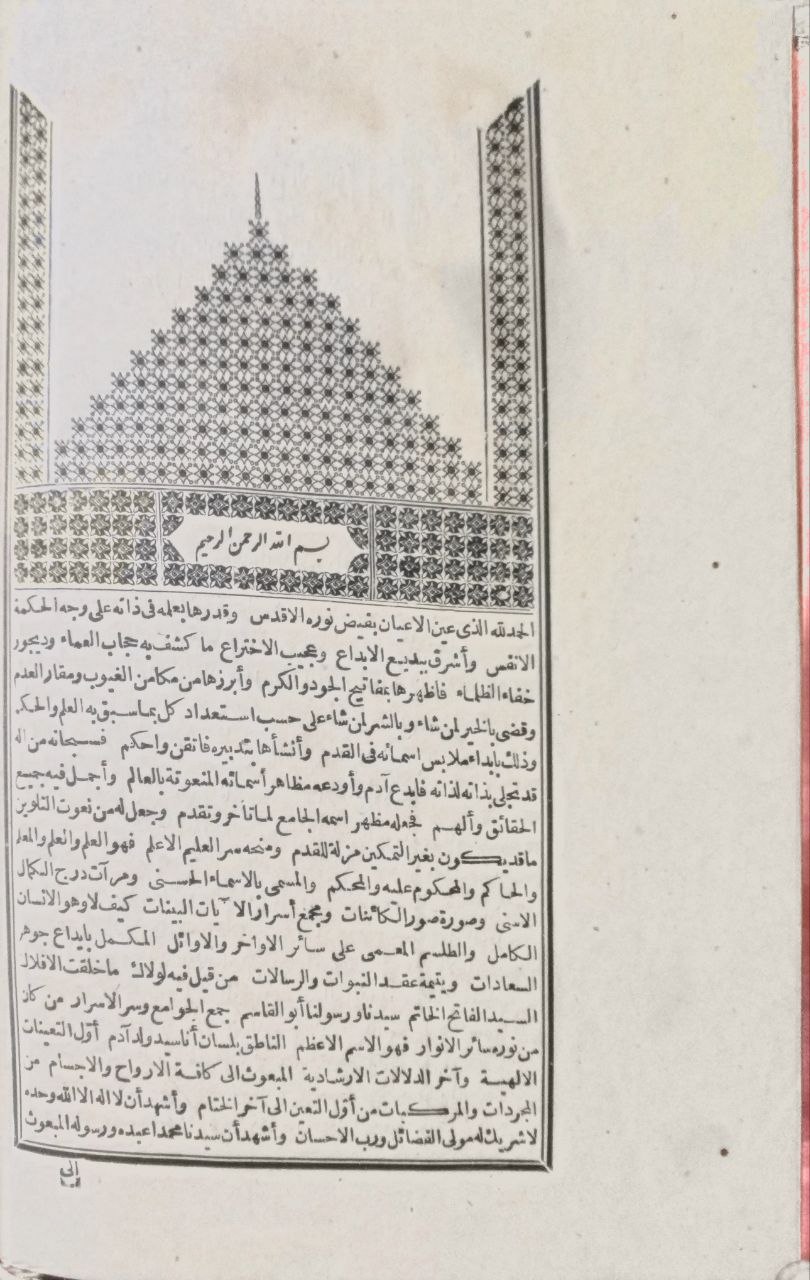 بسم الله الرحمن الرحيم
الحمد لله الذى عين الاعيان بفيض نوره الاقدس وقدرها بعلمه فى ذاته على وجه الحكمة
الانفس وأشرق ببديع الابداع وعجيب الاختراع ما كشف به حجاب العماء وديجور
خفاء الظلماء فاظهرها بمفاتيح الجود والكرم وأبرزها من مكامن الغيوب ومقار العدم
وقضى بالخير لمن شاء وبالشر لمن شاء على حسب استعداد كل بما سبق به العلم والحكم
وذلك بابداء ملابس اسمائه فى القدم وأنشأها بتدبيره فاتقن واحكم فسبحانه من اله
قد تجلى بذاته لذاته فابدع آدم وأودعه مظاهر أسمائه المنعوتة بالعالم وأجمل فيه جميع
الحقائق وألهم فجعله مظهر اسمه الجامع لما تأخر وتقدم وجعل له من نعوت التلوين
ما قد يكون بغير التمكين مزلة للقدم ومنحه سر العليم الاعلم فهو العلم والعلم والمعلم
والحاكم والمحكوم عليه والمحكم والمسمى بالاسماء الحسنى ومرآت درج الكمال
الاسنى وصورة صور الكائنات ومجمع أسرار الآيات البينات كيف لا وهو الانسان
الكامل والطلسم المعمى على سائر الاواخر والاوائل المكمل بايداع جوهر
السعادات ويتيمة عقد النبوات والرسالات من قيل فيه لولاك ما خلقت الافلاك
السيد الفاتح الخاتم سيدنا ورسولنا أبو القاسم جمع الجوامع وسر الاسرار من كان
من نوره سائر الانوار فهو الاسم الاعظم الناطق بلسان أنا سيد ولد آدم أول التعينات
الالهية وآخر الدلالات الارشادية المبعوث الى كافة الارواح والاجسام من
المجردات والمركبات من أول التعين الى آخر الختام وأشهد أن لا اله الا الله وحده
لا شريك له مولى الفضائل ورب الاحسان وأشهد أن سيدنا محمدا عبده ورسوله المبعوث
الى